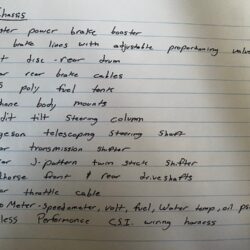 chassis
ster power brake booster
brake lines with adjustable proportioning valve
t disc - rear drum
ar rear brake cables
poly fuel tank
hane body mounts
dit tilt steering column
geson telescoping steering shaft
ar transmission shifter
ar J-pattern twin stick shifter
lhorse front & rear driveshafts
ar throttle cable
o Meter - speedometer, volt, fuel, water temp, oil ps
less Performance C.S.I. wiring harness